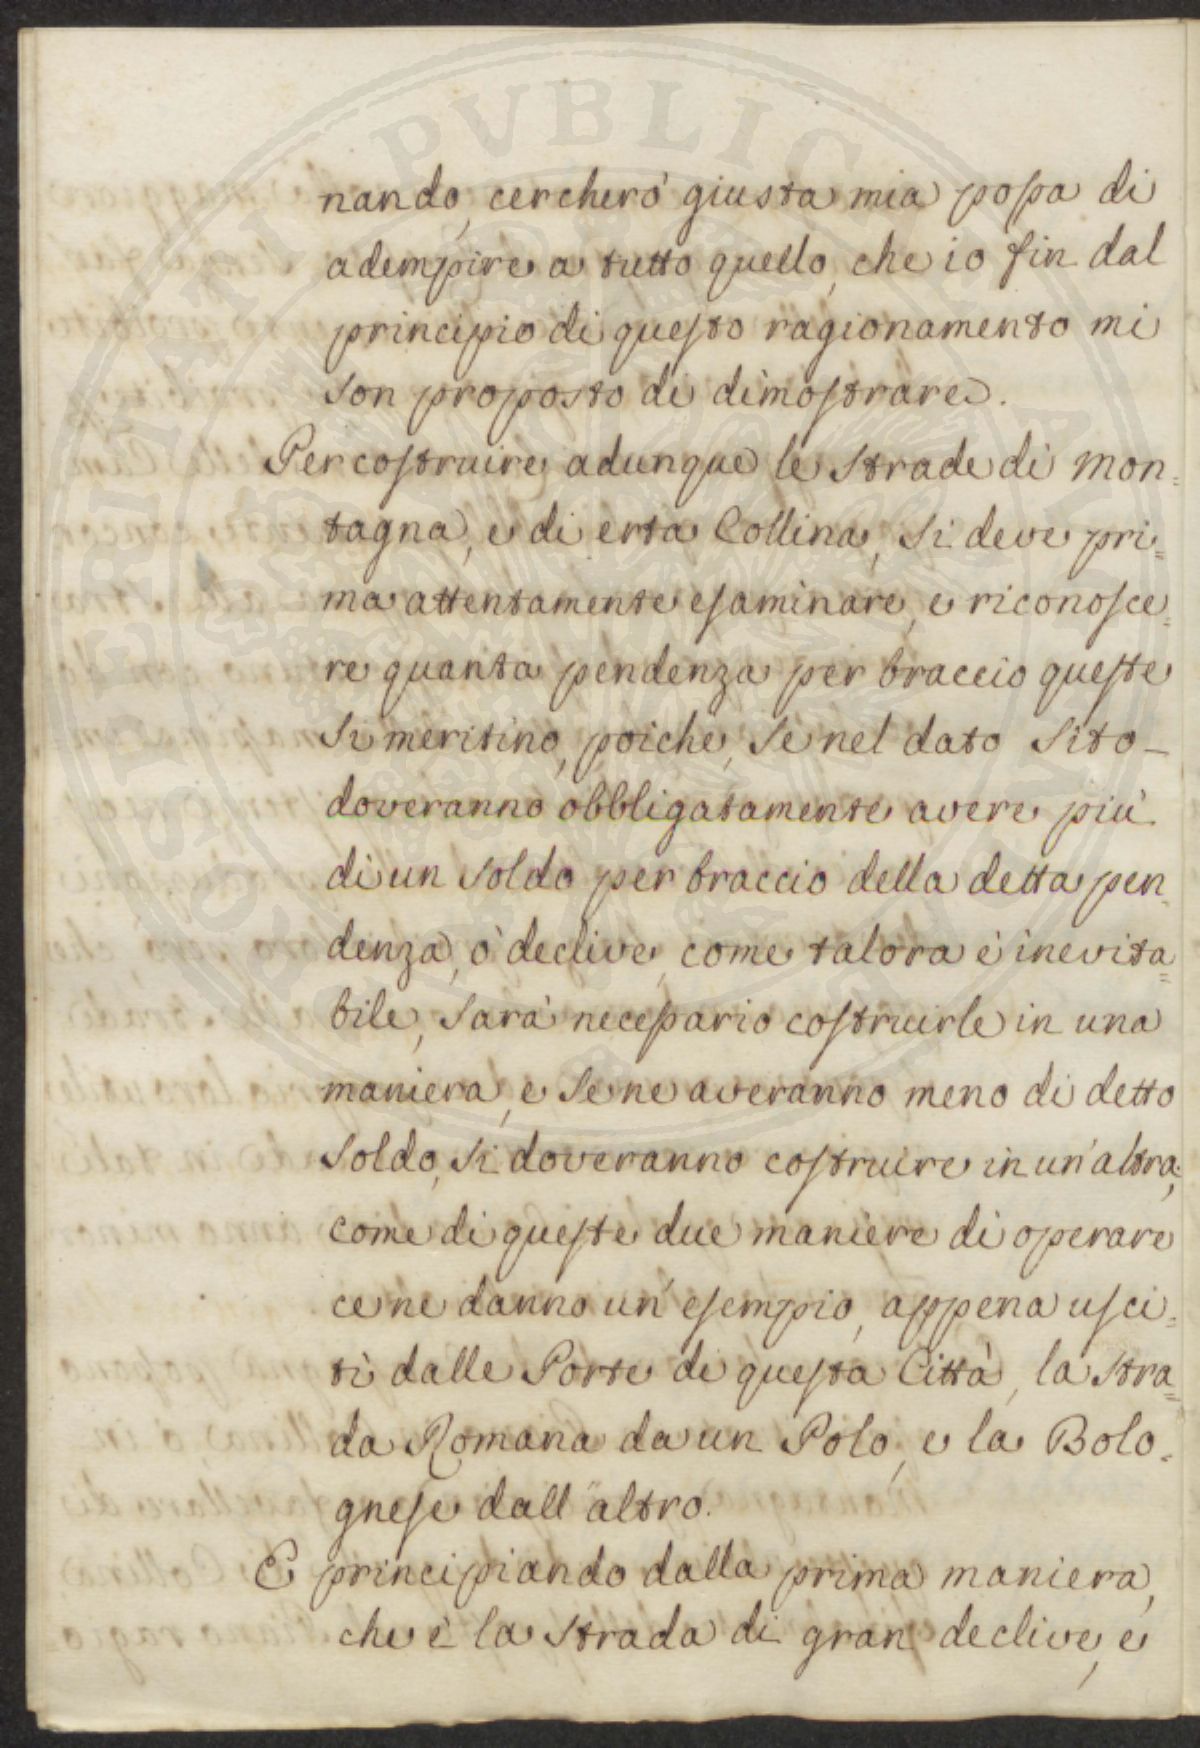 nando, cercherò giusta mia possa di
adempire a tutto quello, che io fin dal
principio di questo ragionamento mi
son proposto di dimostrare.
Per costruire adunque le strade di mon=
tagna, e di erta Collina, si deve pri=
ma attentamente esaminare, e riconosce=
re quanta pendenza per braccio queste
si meritino, poichè, se nel dato sito -
doveranno obbligatamente avere più
di un soldo per braccio della detta pen=
denza, ò declive, come talora è inevita=
bile, sarà necessario costruirle in una
maniera, e se ne averanno meno di detto
soldo, si doveranno costruire in un'altra;
come di queste due maniere di operare
ce ne danno un'esempio, appena usci=
ti dalle Porte di questa Città, la stra=
da Romana da un Polo, e la Bolo=
gnese dall'altro.
E principiando dalla prima maniera,
che è la strada di gran declive, e
PROSPERITATI PVBLICAE